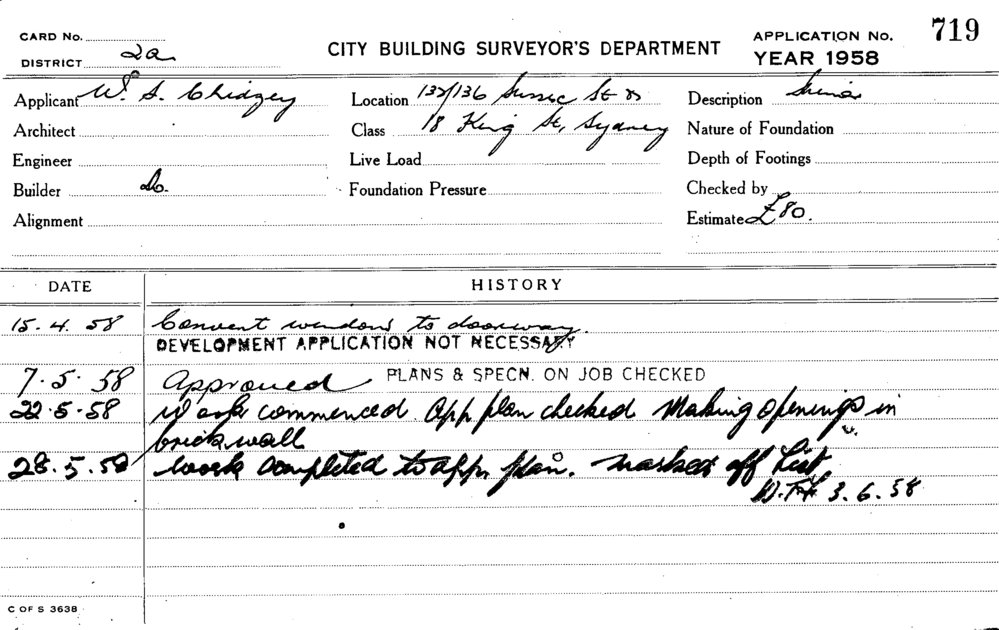 CARD No.
DISTRICT 2a
CITY BUILDING SURVEYOR'S DEPARTMENT
APPLICATION No. 719
YEAR 1958
Applicant W. S. Chidzey
Location 132/136 Sussex St &
Description Minor
Architect
Class 18 King St, Sydney
Nature of Foundation
Engineer
Live Load
Depth of Footings
Builder Do.
Foundation Pressure
Checked by
Alignment
Estimate £80.
DATE HISTORY
15.4.58 Convert window to doorway.
DEVELOPMENT APPLICATION NOT NECESSARY
7.5.58 Approved PLANS & SPECN. ON JOB CHECKED
22.5.58 Work commenced. App plan checked Making openings in
brick wall
28.5.58 Work completed to app. plan. Marked off List
3.6.58
C OF S 3638